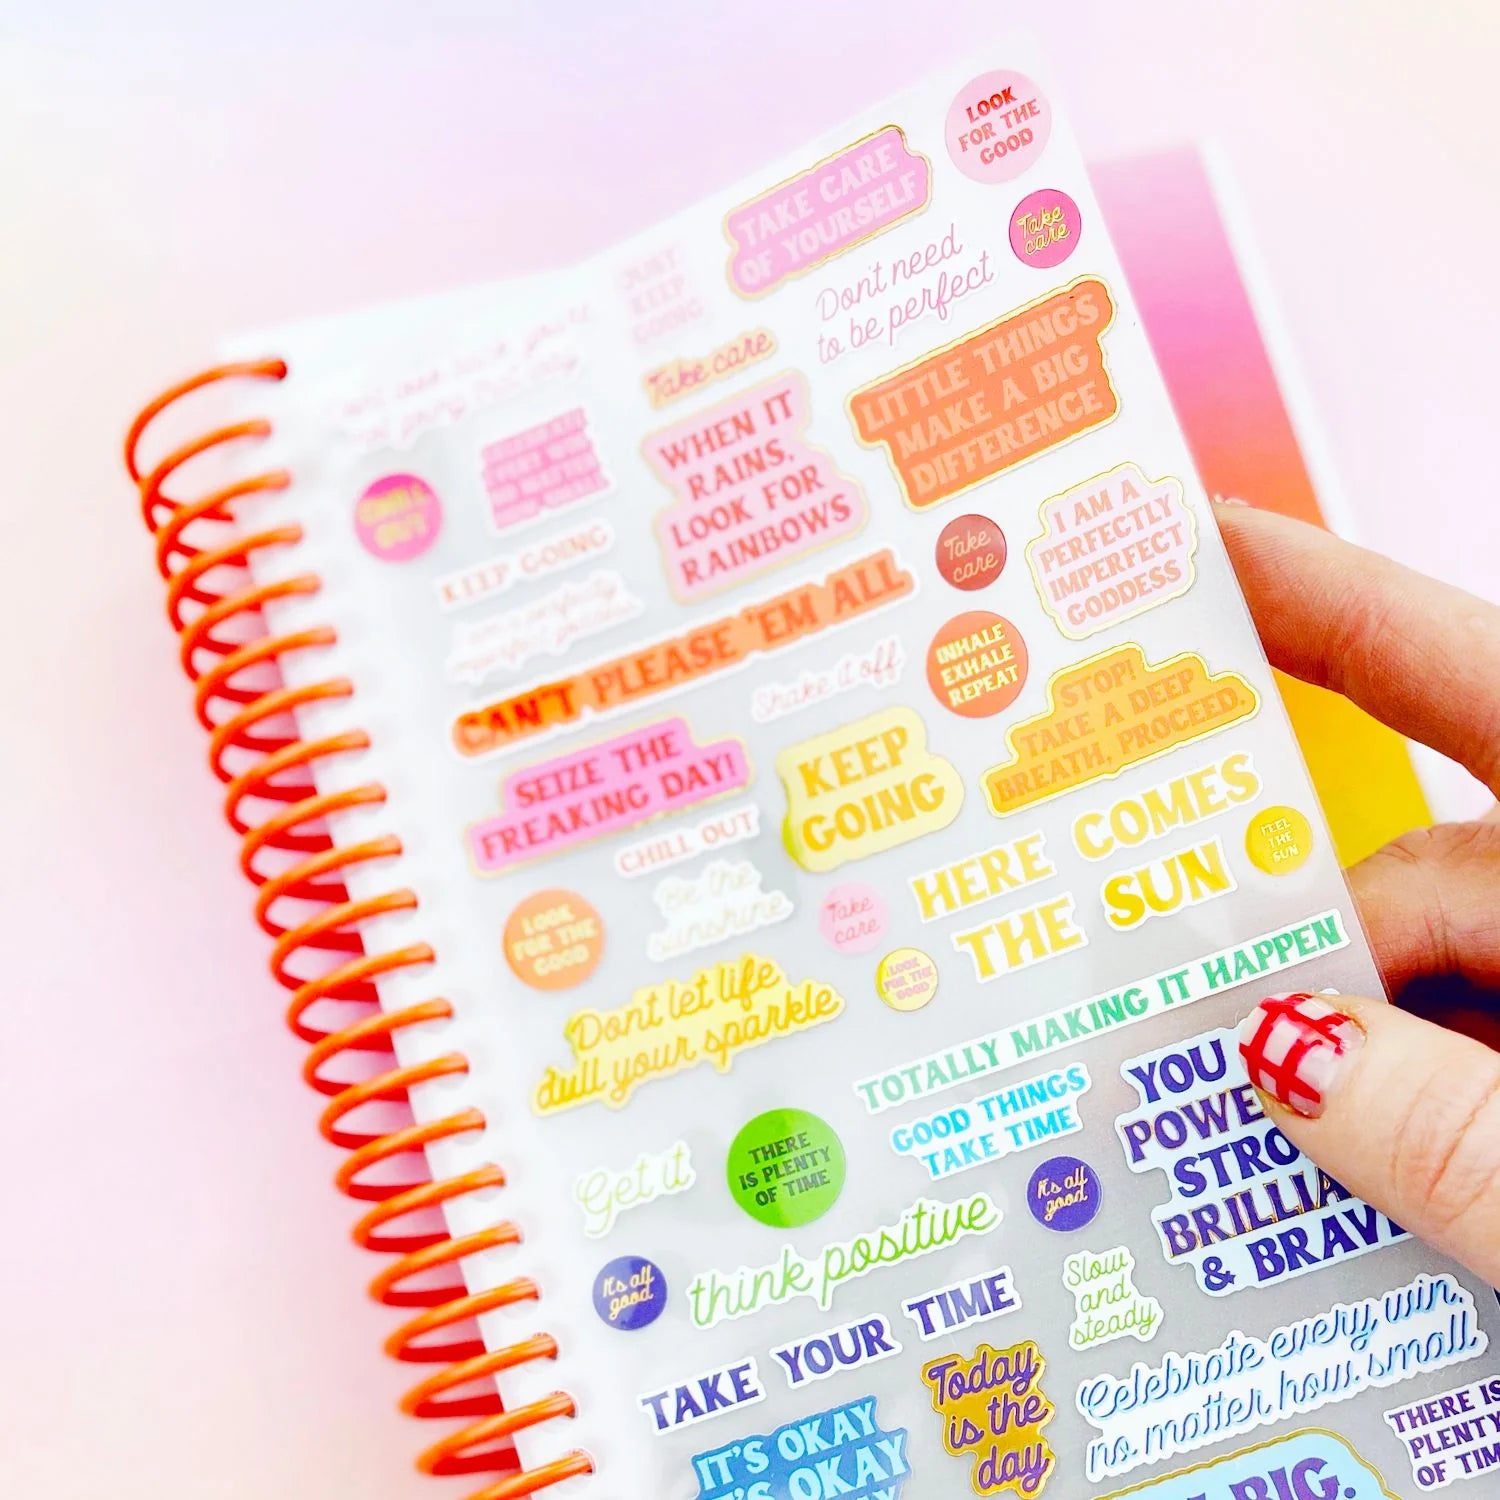 LOOK
FOR THE
GOOD
TAKE CARE
OF YOURSELF
Take
care
JUST
KEEP
GOING
Dont need
to be perfect
Take care
LITTLE THINGS
MAKE A BIG
DIFFERENCE
WHEN IT
RAINS,
LOOK FOR
RAINBOWS
CHILL
OUT
I AM A
PERFECTLY
IMPERFECT
GODDESS
Take
care
KEEP GOING
CAN'T PLEASE 'EM ALL
INHALE
EXHALE
REPEAT
Shake it off
STOP!
TAKE A DEEP
BREATH, PROCEED.
SEIZE THE
FREAKING DAY!
KEEP
GOING
HERE COMES
THE SUN
FEEL
THE
SUN
CHILL OUT
Be the
sunshine
Take
care
LOOK
FOR THE
GOOD
LOOK
FOR THE
GOOD
Dont let life
dull your sparkle
TOTALLY MAKING IT HAPPEN
GOOD THINGS
TAKE TIME
YOU
& BRAVE
Get it
THERE
IS PLENTY
OF TIME
It's all
good
think positive
It's all
good
Slow
and
steady
TAKE YOUR TIME
Celebrate every win,
no matter how small
Today
is the
day
IT'S OKAY
IT'S OKAY
THERE IS
PLENTY
OF TIME
BIG.